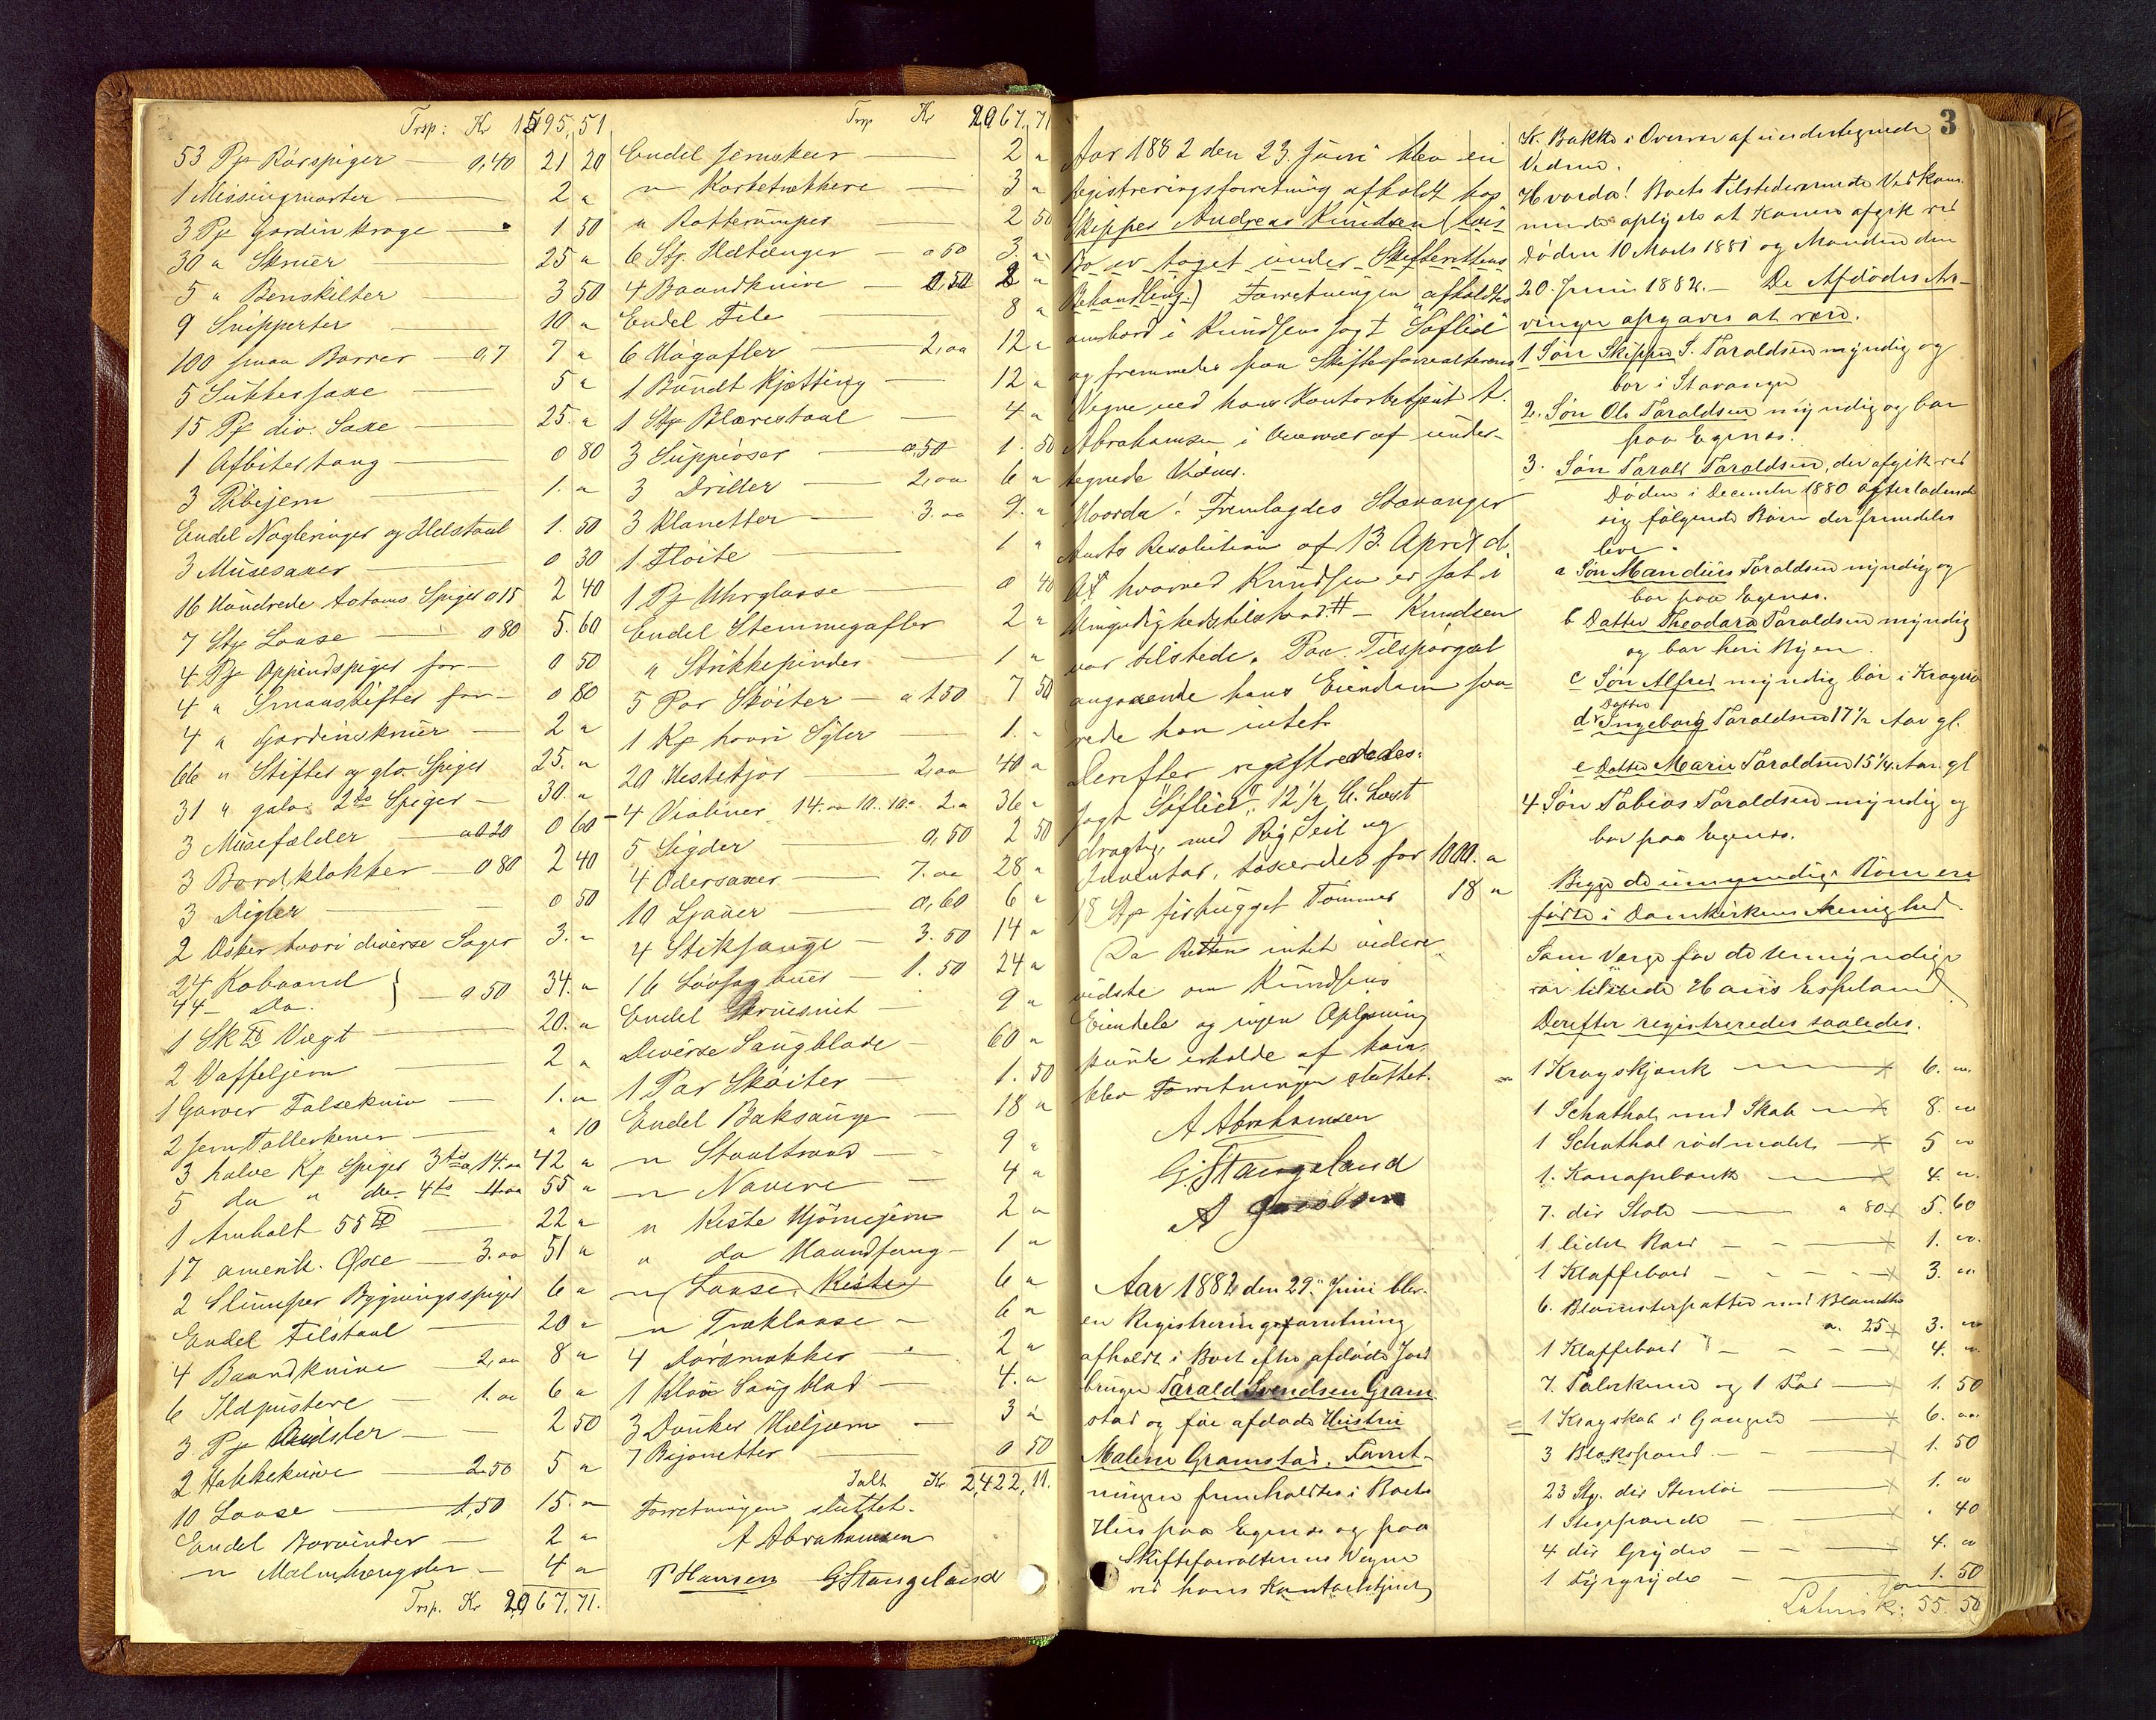 Trsp: Kr 1595,51
53 Pk Rørspiger — 0,40 21 20
1 Missingmorter — 2 "
3 Pk Gardin kroge — 1 50
30 " Skruer — 25 "
5 " Benskilter — 3 50
9 Snipperter — 10 "
100 smaa Borrer — 0,7 7 "
5 Sukkersaxe — 5 "
15 Pk div. Saxe — 25. "
1 Afbitertang — 0 80
3 Pibejern — 1. "
Endel Nagleringer og Helstaal 1. 50
3 Musesaxer — 0 30
16 Hundrede Totoms Spiger 0 15 2 40
7 Stk Laase — 0 80 5. 60
4 Pk Oppindspiger for — 0 50
4 " Smaastifter for — 0 80
4 " Gardinskruer — 2 "
66 " Stifter og glv. Spiger 25. "
31 " galv. 2ts Spiger — 30. "
3 Musefælder — a 0 20 0 60
3 Bordklokker — 0 80 2 40
3 Digler — 0 50
2 Æsker hvori diverse Sager 3. "
24 Kobaand
44 — Do. } — 0 50 34. "
1 Sk ℔ Vægt — 20. "
2 Vaffeljern — 2 "
1 Garver Falsekniv — 1. "
2 Jern Tallerkener — " 10
3 halve Kg Spiger 3ts a 14.00 42 "
5 do " do. 4ts 11.00 55 "
1 Amboldt 55 ℔ — 22 "
17 amerik. Øxe — 3.00 51 "
2 Slumper Bygningsspiger 6 "
Endel Filstaal — 20 "
4 Baandknive 2,00 8 "
6 Ildpustere — 1.00 6 "
3. Pk — 2 50
2 Hakkeknive — 2.50 5 "
10 Laase — 1,50 15. "
Endel Borvinder — 2 "
" Malmhængsler — 4 "
Trsp. Kr 2067,71.
Trsp Kr 2067,71
Endel Jernskeer — 2 "
" Korketrækkere — 3 "
" Rotterumper — 2 50
6 Stk. Hætænger — 0 50 3. "
4 Baandknive — 0,50 2 "
Endel File — 8 "
6 Høgafler — 2,00 12 "
1 Bundt Kjætting — 12 "
1 Stk Blærestaal — 4 "
3 Suppeøser — 0,50 1. 50
3 Driller — 2,00 6 "
3 Klanetter — 3.00 9. "
1 Fløite — 1 "
1 Pk Uhrglasse — 0 40
Endel Stemmegafler 2 "
" Strikkepinder — 1 "
5 Par Skøiter — a 1 50 7 50
1 Kg hvori Syler — 1. "
20 Hestetjor — 2,00 40 "
4 Violiner 14.00 10.. 10.. 2. " 36 "
5 Sigder — 0,50 2 50
4 Odersaxer — 7.00 28 "
10 Ljaaer — 0,60 6 "
4 Stiksauge — 3.50 14 "
16 Løvsagbuer — 1.50 24 "
Endel Skruesnit — 9 "
Diverse Saugblade — 60 "
1 Par Skøiter — 1. 50
Endel Baksauge — 18 "
" Staaltraad — 9 "
" Navere — 4 "
" Kiste Hjørnejern 2 "
" do Haandfang — 1 "
" Laase (Kiste) 6 "
" Træklaase — 6 "
4 Dørsmækker — 2 "
1 Klov Saugblad — 4. "
3 Dunker Hæljern — 3 "
7 Bajonetter 0 50
Ialt Kr 2,422,11.
Forretningen sluttet.
A Abrahamsen
P Hansen GStangeland
3
Aar 1882 den 23. Juni blev en
Registreringsforretning afholdt hos
Skipper Andreas Knudsen (hvis
Bo er taget under Skifterettens
Behandling.) Forretningen afholdtes
ombord i Knudsens Jagt "Søflid"
og fremmedes paa Skifteforvalterens
Vegne ved hans Kontorbetjent A.
Abrahamsen i Overvær af under-
tegnede Vidner.
Hvorda! Fremlagdes Stavanger
Amts Resolution af 13. April d.
A. hvorved Knudsen er sat i
Umyndighedstilstand. # — Knudsen
var tilstede. Paa Tilspørgsel
angaaende hans Eiendom sva-
rede han intet.
Derefter registreredes:
Jagt "Søflid", 12 1/2 C. Læst
drægtig, med Rig Seil og
Inventar, taxeredes for 1000. "
18 Stk firhugget Tømmer 18 "
Da Retten intet videre
vidste om Knudsens
Eiendele og ingen Oplysning
kunde erholde af ham
blev Forretningen sluttet.
A Abrahamsen
GStangeland
A Jacobsen
Aar 1882 den 29. Juni blev
en Registreringsforretning
afholdt i Boet efter afdøde Jord
bruger Tarald Svendsen Gram
stad og før afdøde Hustru
Malene Gramstad. Forret-
ningen fremholdtes i Boets
Hus paa Egenes og paa
Skifteforvalterens Vegne
ved hans Kontorbetjent
K. Bakke i Overvær af undertegnede
Vidner.
Hvorda! Boets Tilstedeværende Vedkom-
mende oplyste at Konen afgik ved
Døden 10 Marts 1881 og Manden den
20. Juni 1882. — De Afdødes Ar-
vinger opgaves at være.
1 Søn Skipper S. Taraldsen myndig og
bor i Stavanger
2. Søn Ole Taraldsen myndig og bor
paa Egenes.
3. Søn Tarald Taraldsen, der afgik ved
Døden i December 1880 efterladende
sig følgende Børn der fremdeles
leve.
a Søn Mandius Taraldsen myndig og
bor paa Egenes.
b Datter Theodara Taraldsen myndig
og bor heri Byen.
c Søn Alfred myndig bor i Kragerø
d Datter Ingeborg Taraldsen 17 1/2 Aar gl.
e Datter Marie Taraldsen 15 1/4 Aar. gl
4 Søn Tobias Taraldsen myndig og
bor paa Egenes.
Begge de umyndige Børn ere
fødte i Domkirkens Menighed.
Som Værge for de umyndige
var tilstede Hans Espeland
Derefter registreredes saaledes.
1 Kragskjænk — 6. "
1 Schathol med Skab — 8. "
1 Schathol rødmalet — 5 "
1. Kanapebænk — 4. "
7. div Stole — a 80 5. 60
1 lidet Bord — 1. "
1 Klaffebord — 3. "
6. Blomsterpotter med Blomster
a. 25 3. "
1 Klaffebord — 4. "
7. Talerkener og 1 Fad — 1. 50
1 Kragskab i Gangen — 6. "
3 Blikspand — 1. 50
23 Stk. div Stentøi — 1. "
1 Stegepande — . 40
4 div Gryder — 4. "
1 Fyrgryde — 1. 50
Latus Kr: 55. 50